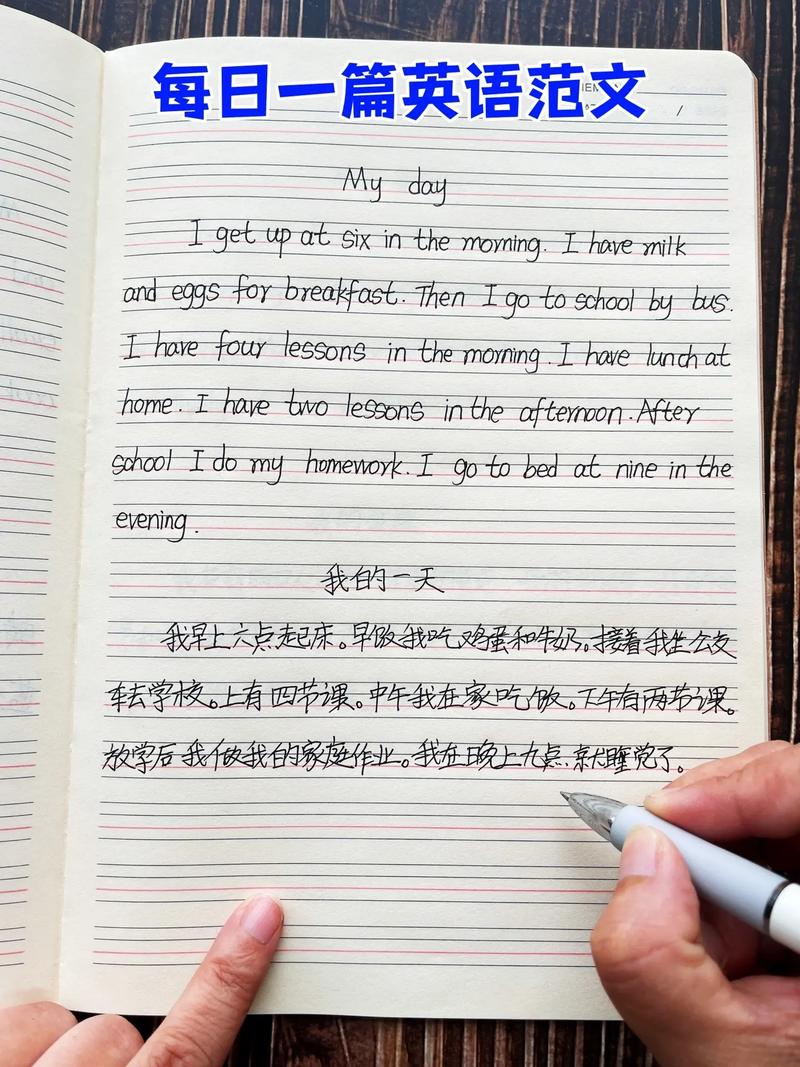 每日一篇英语范文
My day
I get up at six in the morning. I have milk
and eggs for breakfast. Then I go to school by bus.
I have four lessons in the morning. I have lunch at
home. I have two lessons in the afternoon. After
school I do my homework. I go to bed at nine in the
evening.
我的一天
我早上六点起床。早饭我吃鸡蛋和牛奶。接着我坐公交
车去学校。上有四节课。中午我在家吃饭。下午有两节课。
放学后我做我的家庭作业。我在晚上九点就睡觉了。